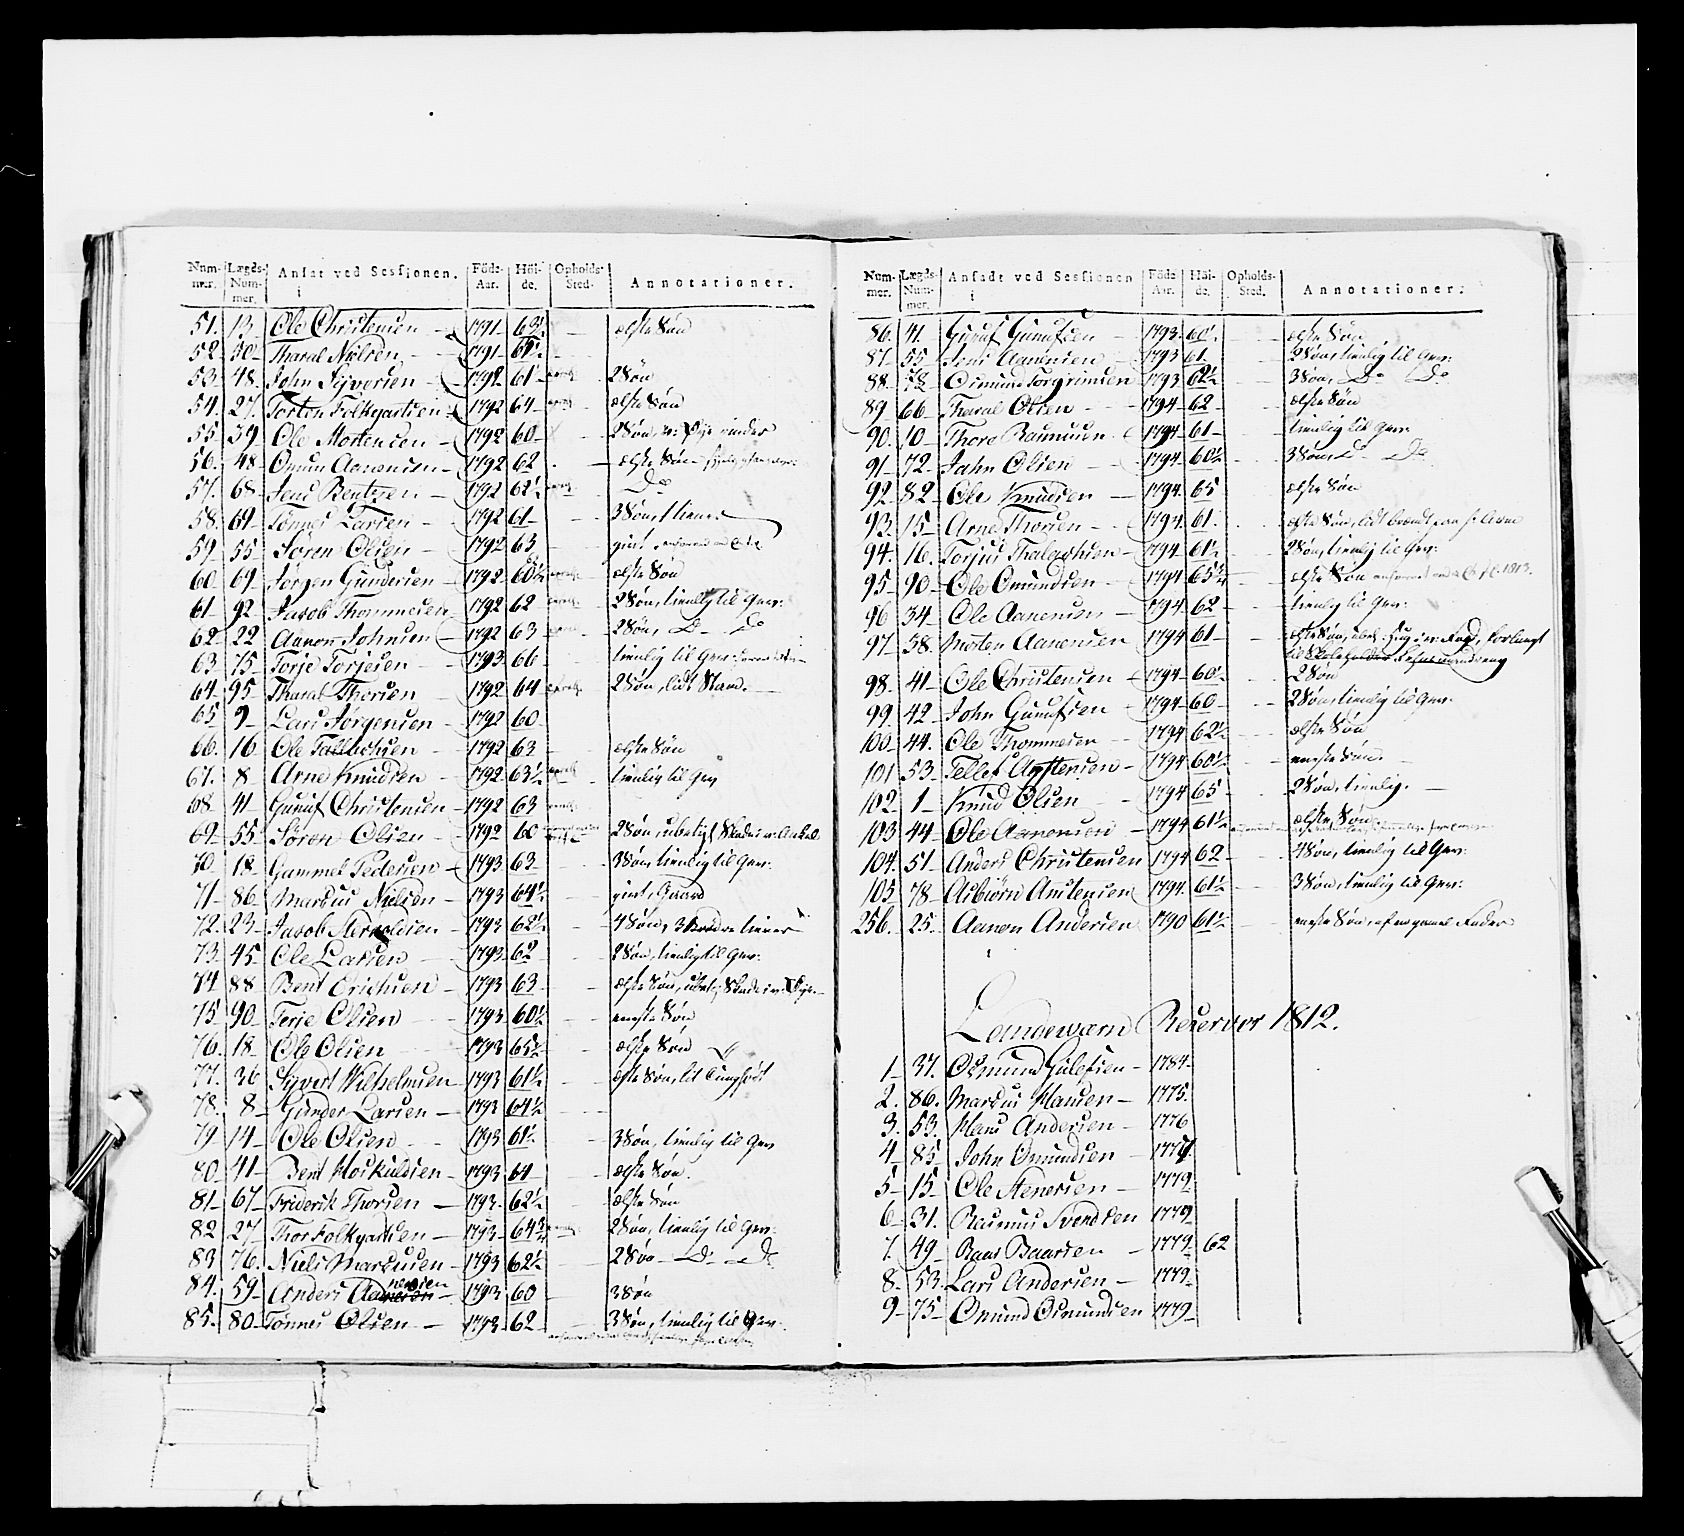 Num- Lægds- Ansat ved Sessionen. Föde- Höi- Opholds- Annotationer.
mer. Num- i Aar. de. Sted.
mer.
51. 13. Ole Christensen 1791 63½ ælste Søn
52 30 Tharal Nielsen 1791 61½
53 48. John Syversen 1792 61½ 2 Søn
54. 27. Torsten Folkvartsen 1792 64 ælste Søn
55 39. Ole Mortensen 1792 60 2 Søn
56. 48 Omund Aanensen 1792 62 ælste Søn
57. 68 Jens Bentsen 1792 62½ Do
58. 69 Tönnes Larsen 1792 61 3 Søn
59 55 Sören Olsen 1792 63 givt
60. 69. Jörgen Gundersen 1792. 60½ ælste Søn
61 92 Jacob Thommesen 1792 62 2 Søn, tienlig til Gev:
62. 22 Aanon Johnsen 1792 63 2 Søn, Do Do
63 75 Torje Torjesen 1793. 66 tienlig til Gev:
64. 95 Tharal Thorsen 1792 64 2 Søn, lidt Stam.
65 9 Lars Jörgensen 1792 60
66. 16 Ole Tallachsen 1792 63 ælste Søn
67. 8 Arne Knudsen 1792 63½ tienlig til Gev
68 41 Gunuf Christensen 1792 63
69. 55 Sören Olsen 1792 60 2 Søn, ubetyd: Skade i v: Ankel
70 18 Gammel Pedersen 1793 63 3 Søn, tienlig til Gev:
71 86 Marcus Nielsen 1793 64½ givt, Gaard
72. 23 Jacob 1793 62½ 4 Søn, 3 Brødre tiener
73. 45 Ole Larsen 1793 62 2 Søn, tienlig til Gev:
74 88 Bent Erichsen 1793 63 ælste Søn, ubet: Skade i v: Øje
75 90 Terje Olsen 1793 60½ eneste Søn
76. 18 Ole Olsen 1793 65½ ælste Søn
77. 36 Syvert Vilhelmsen 1793 61½ ælste Søn, lit Tunghørt
78. 8 Gunder Larsen 1793 64½
79 14 Ole Olsen 1793 61½ 3 Søn, tienlig til Gev
80 41 Bent Hoskuldsen 1793 64 ælste Søn.
81 67 Friderik Thorsen 1793. 62½ ælste Søn
82 27 Thor Folkvardsen 1793 64¾ 2 Søn, tienlig til Gev:
83 76. Niels Marcusen 1793 62½ 2 Søn Do Do
84. 59 Anders Aanensen 1793 60 3 Søn
85. 80 Tönnes Olsen 1793 62 3 Søn, tienlig til Gev:
Num- Lægds- Ansadt ved Sessionen Föde- Höi- Opholds- Annotationer.
mer. Num- i Aar. de. Sted.
mer.
86. 41. Gunuf Gunufsen 1793 60½ ælste Søn
87. 55 Jens Aanensen 1793 61 2 Søn, tienlig til Gev:
88. 78 Osmund Torgrimsen 1793 62½ 3 Søn, Do Do
89 66 Tharal Olsen 1794 62 ælste Søn
90. 10 Thore Rasmusen 1794 61 tienlig til Gev:
91 72 Jahn Olsen 1794. 60½ 3 Søn, Do Do
92. 82 Ole Knudsen 1794. 65 ælste Søn
93. 15 Arne Thorsen 1794. 61.
94. 16. Torjus Thalachsen 1794 61½ 2 Søn, tienlig til Gev:
95 90 Ole Omundsen 1794 65¾ ælste Søn
96 34 Ole Aanensen 1794 62 tienlig til Gev:
97 38. Morten Aanensen 1794 61
98. 41 Ole Christensen 1794 60½ 2 Søn
99 42 John Gunufsen 1794 60 2 Søn, tienlig til Gev:
100 44. Ole Thommesen 1794 62½ ælste Søn
101 53. Tellef Aystensen 1794 60½ eneste Søn.
102. 1 Knud Olsen 1794 65 2 Søn, tienlig.
103 44 Ole Aanensen 1794 61½ ælste Søn
104. 51 Anders Christensen 1794 62 4 Søn, tienlig til Gev:
105 78 Asbiörn Anstensen 1794. 61½ 3 Søn, tienlig til Gev:
256. 25. Aanon Andersen 1790 61½ eneste Søn, af en gamel Fader
Landeværn Reserver 1812.
1 37. Osmund Gulefsen 1784
2. 86. Marcus Hansen 1775.
3. 53. Hans Andersen 1776
4 85 John Omundsen 1777
5 15 Ole Stenersen 1779
6 31. Rasmus Svendsen 1779
7. 49 Baar Baarsen 1779 62
8 53. Lars Andersen 1779
9 75 Omund Osmundsen 1779